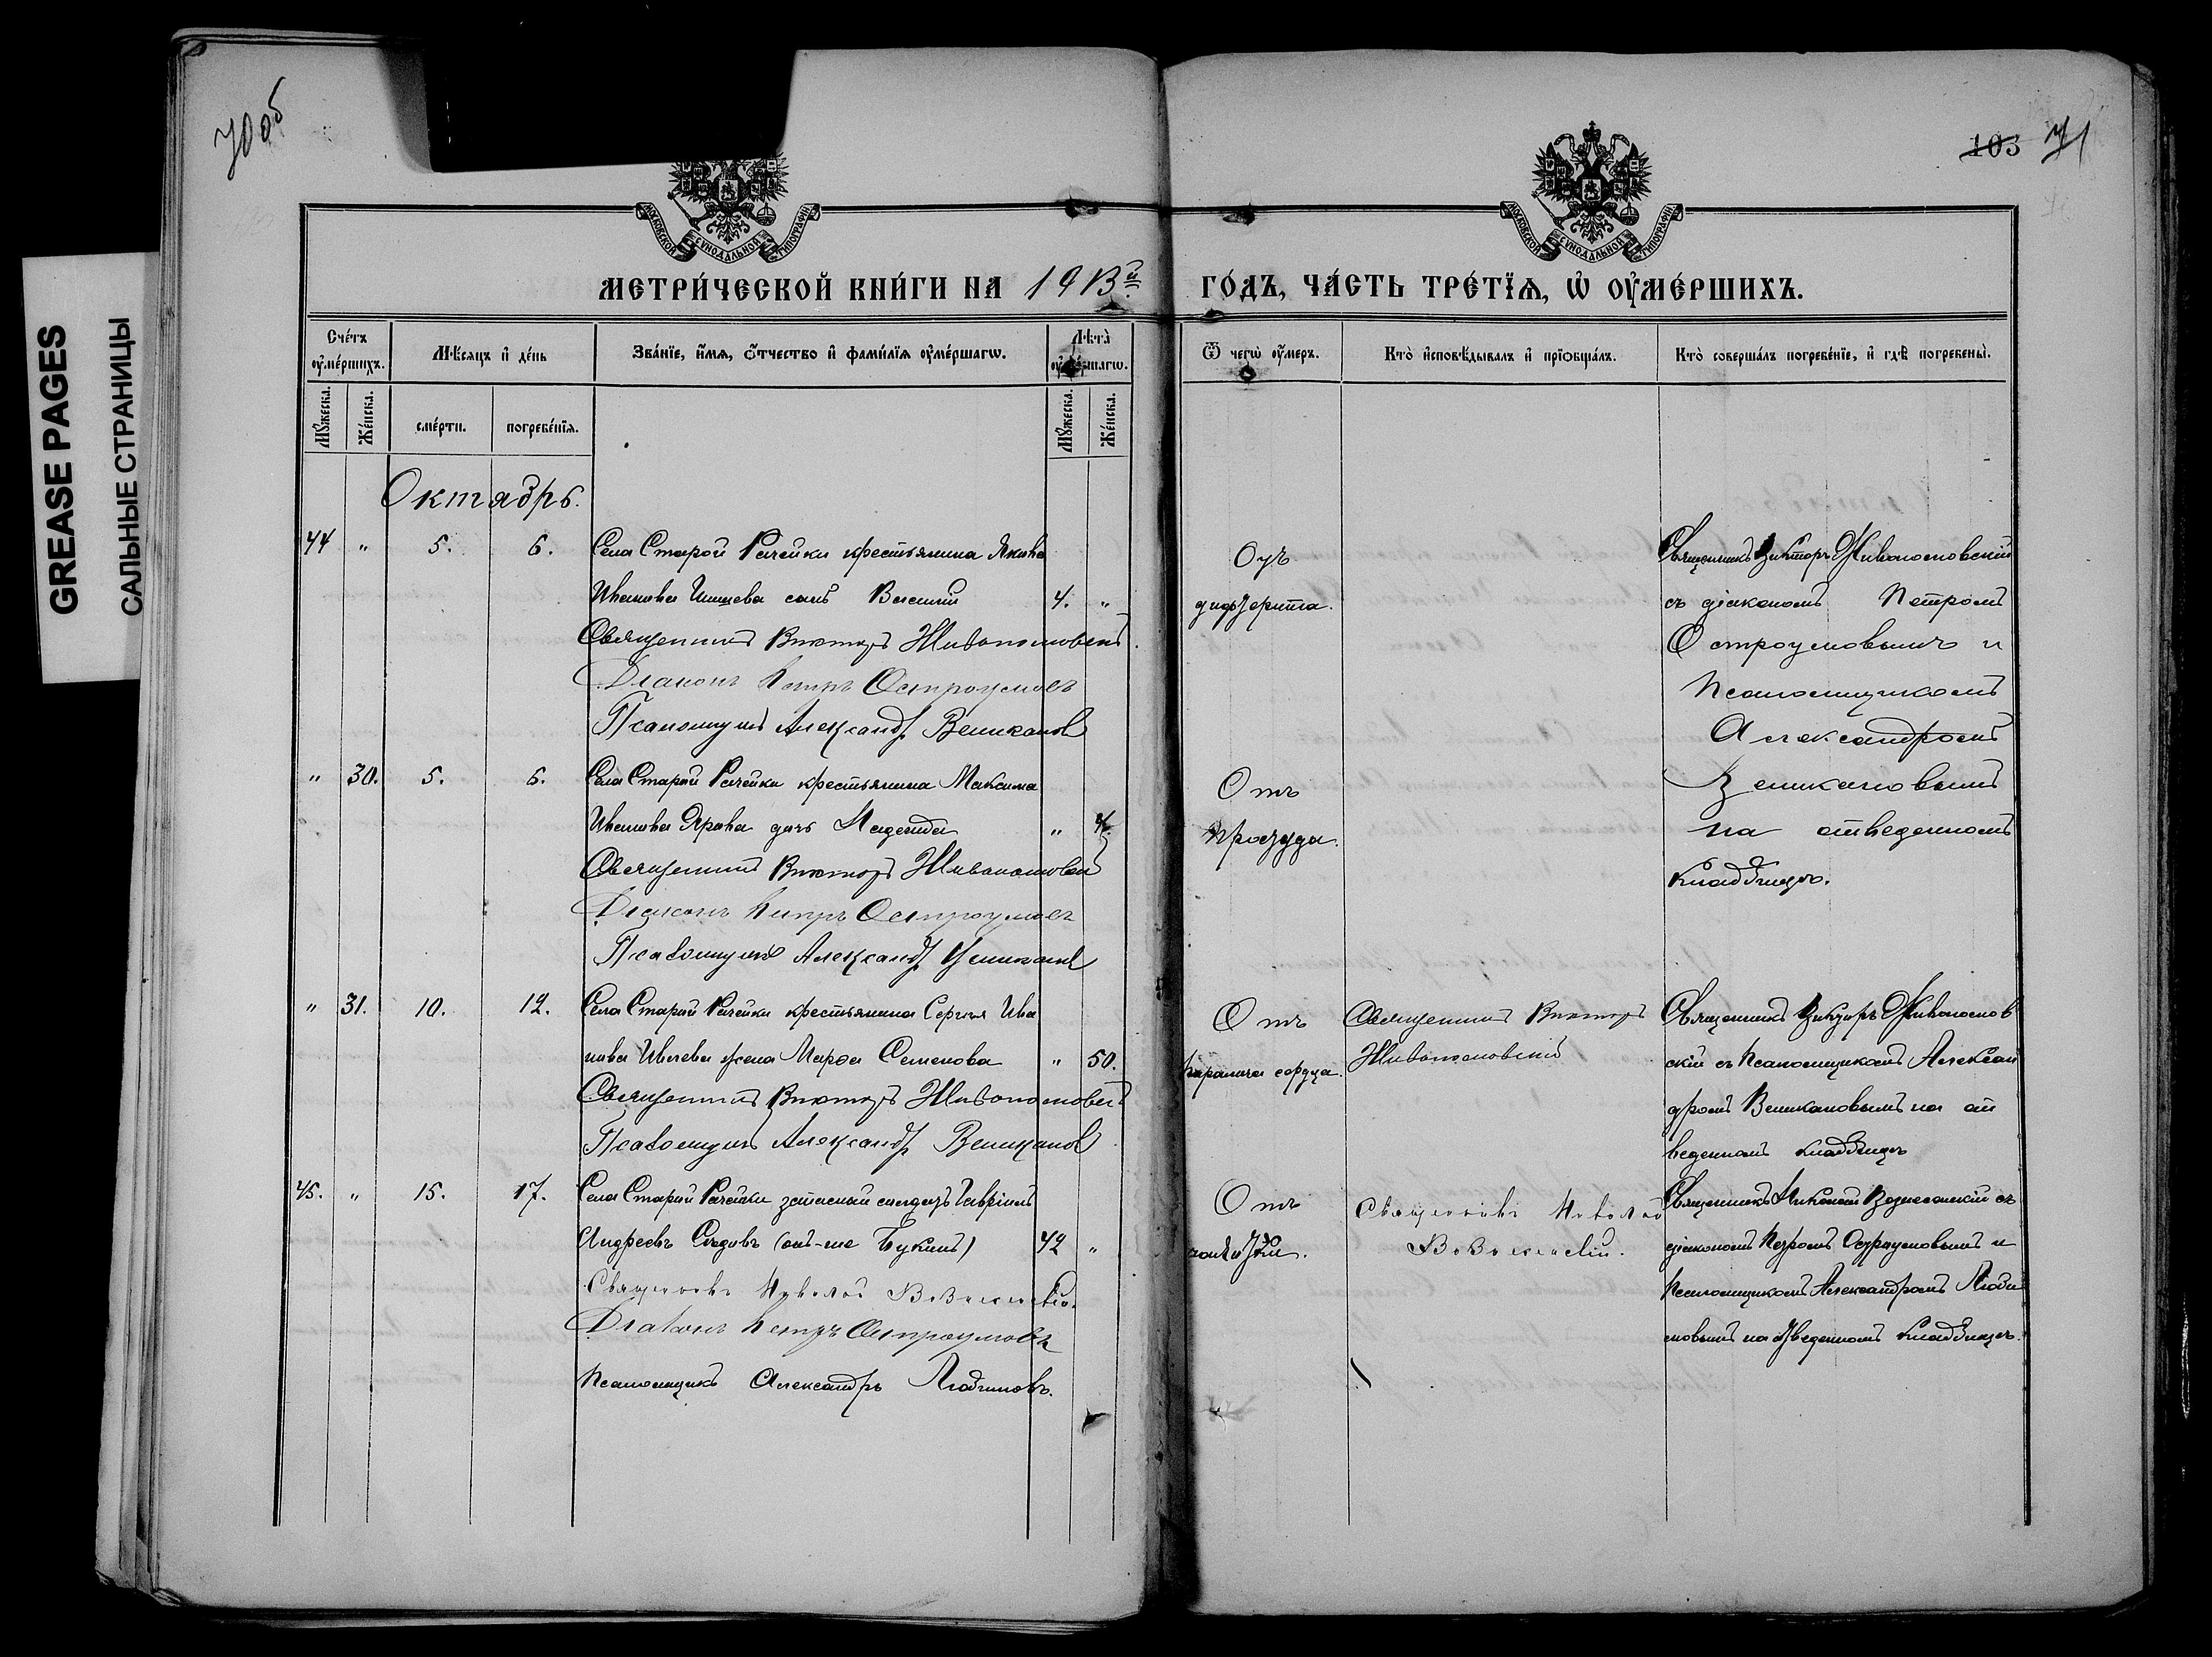 GREASE PAGES
САЛЬНЫЕ СТРАНИЦЫ
70об
103 71
МОСКОВСКОЙ СУНОДАЛЬНОЙ ТИПОГРАФІИ
МОСКОВСКОЙ СУНОДАЛЬНОЙ ТИПОГРАФІИ
МЕТРИ́ЧЕСКОЙ КНИ́ГИ НА 1913й
ГО́ДЪ, ЧА́СТЬ ТРЕ́ТЇѦ, Ѡ҆ ОУ҆МЕ́РШИХЪ.
Сче́тъ оу҆ме́ршихъ.
Мѣ́сѧцъ и҆ де́нь
Зва́нїе, и҆́мѧ, ѻ҆́тчество и҆ фами́лїѧ оу҆ме́ршагѡ.
Лѣ́та оу҆ме́ршагѡ.
Ѿ чегѡ̀ оу҆́меръ.
Кто̀ и҆сповѣ́дывалъ и҆ прїѻбща́лъ.
Кто̀ соверша́лъ погребе́нїе, и҆ гдѣ̀ погребены̀.
Мꙋ́жеска.
Же́нска.
сме́рти.
погребе́нїѧ.
Мꙋ́жеска.
Же́нска.
Октябрь.
44 " 5. 6. Села Старой Рачейки крестьянина Якова
Иванова сынъ Василій 4. "
Священникъ Викторъ Живополовскій
Діаконъ Петръ Остроумовъ
Псаломщикъ Александръ Великановъ
Отъ
дифтерита.
Священникъ Викторъ Живополовскій
съ діакономъ Петромъ
Остроумовымъ и
псаломщикомъ
Александромъ
Великановымъ
на отведенномъ
кладбищѣ.
" 30. 5. 6. Села Старой Рачейки крестьянина Максима
Иванова дочь Надежда " 4.
Священникъ Викторъ Живополовскій
Діаконъ Петръ Остроумовъ
Псаломщикъ Александръ Великановъ
Отъ
простуды.
" 31. 10. 12. Села Старой Рачейки крестьянина Сергія Ива
нова Ивлева жена Марѳа Семенова " 50.
Священникъ Викторъ Живополовскій
Псаломщикъ Александръ Великановъ
Отъ
паралича сердца.
Священникъ Викторъ
Живополовскій
Священникъ Викторъ Живополов
скій съ псаломщикомъ Алексан
дромъ Великановымъ на от
веденномъ кладбищѣ
45. " 15. 17. Села Старой Рачейки запасный солдатъ Гавріилъ
Андреевъ Сѣдовъ (онъ-же Букинъ) 42 "
Священникъ Николай Вознесенскій.
Діаконъ Петръ Остроумовъ
Псаломщикъ Александръ Любимовъ.
Отъ
чахотки.
Священникъ Николай
Вознесенскій.
Священникъ Николай Вознесенскій съ
діакономъ Петромъ Остроумовымъ и
псаломщикомъ Александромъ Люби
мовымъ на отведенномъ кладбищѣ.